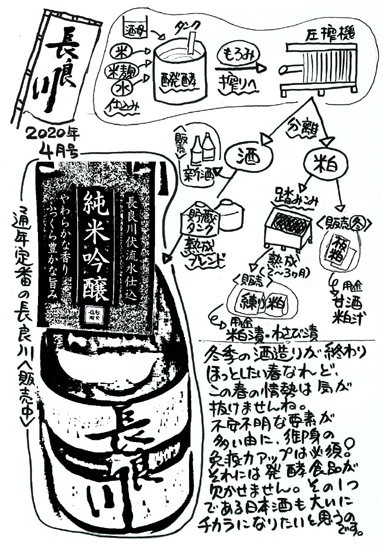 長良川
2020年
4月号
酒母
タンク
米
米麹
水
仕込み
醗酵
もろみ
搾りへ
圧搾機
分離
酒
粕
<販売>
新酒
貯蔵タンク
熟成
ブレンド
踏みこみ
熟成
(2~3ヶ月)
<販売>
練り粕
用途
粕漬・わさび漬
<販売(冬)>
板粕
用途
甘酒
粕汁
長良川伏流水仕込
純米吟醸
やわらかな香り
ふっくら豊かな旨み
通年定番の長良川販売中
長良川
冬季の酒造りが終わり
ほっとしたい春なれど、
この春の情勢は気が
抜けませんね。
不安不明な要素が
多い由に、御身の
免疫力アップは必須!
それには発酵食品が
欠かせません。その1つ
である日本酒も大いに
チカラになりたいと思うの
です。